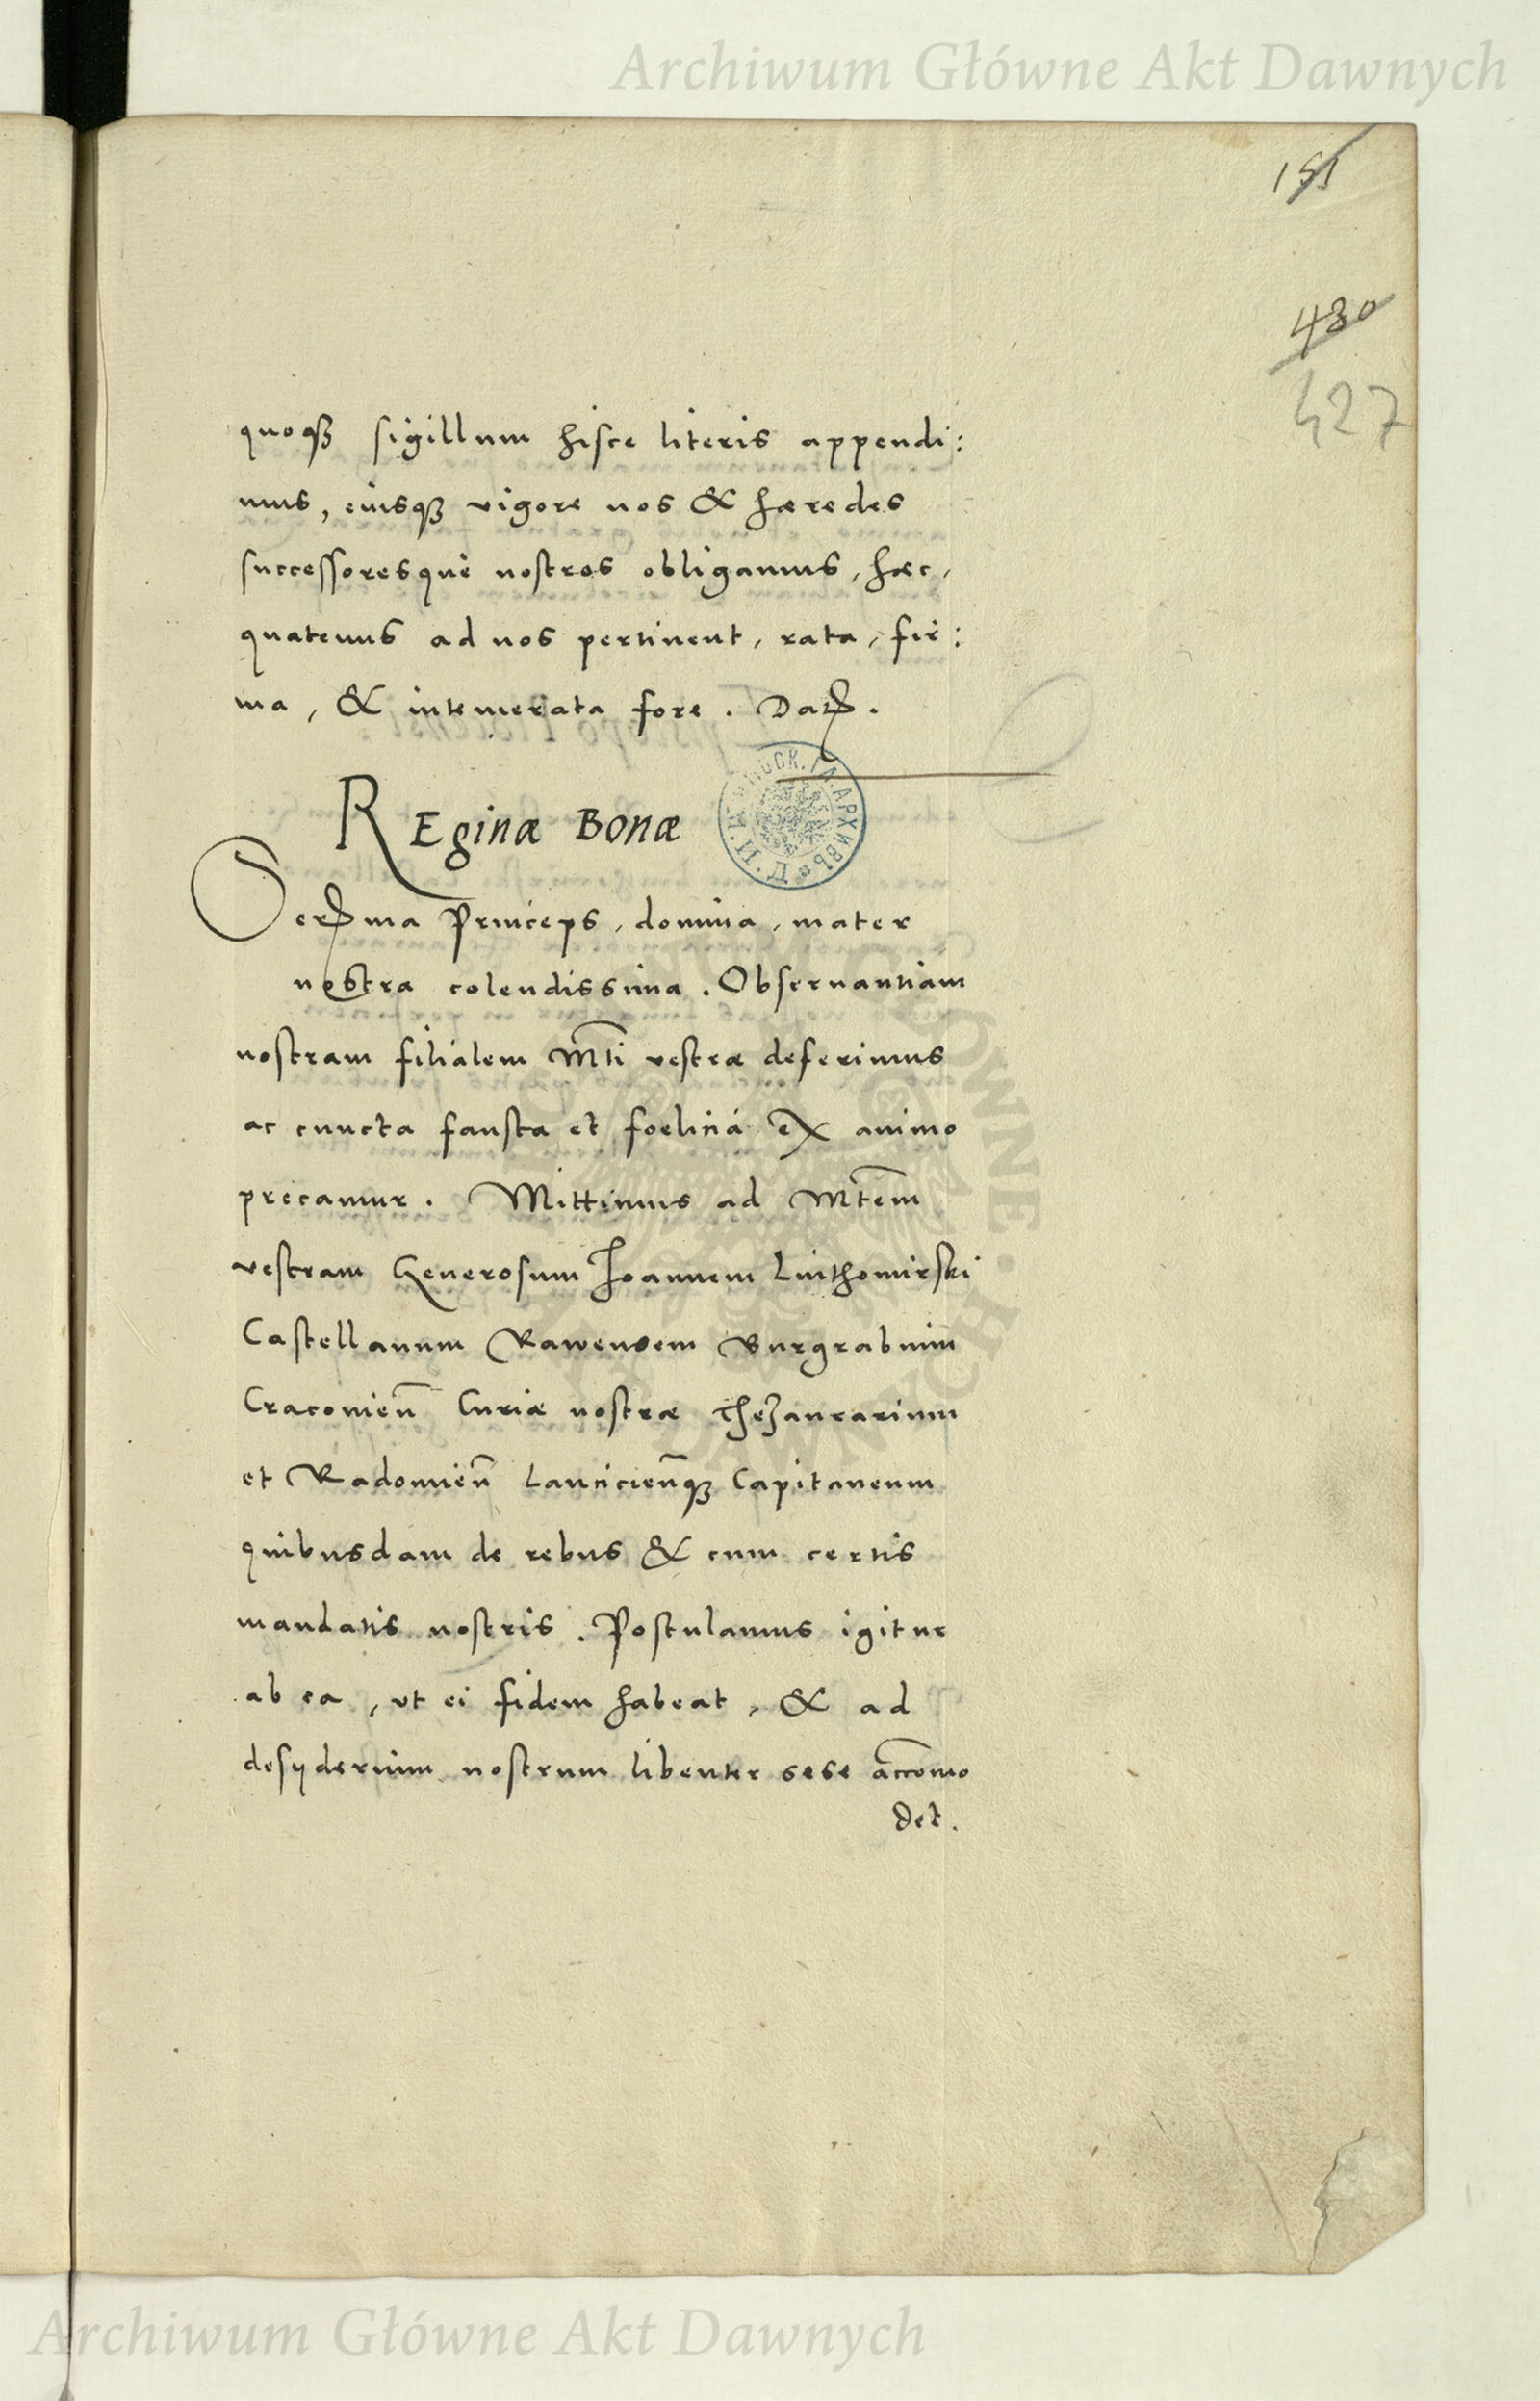 Archiwum Główne Akt Dawnych
151
430
427
quoqꝫ sigillum hisce literis appendi:
mus, eiusqꝫ vigore nos & hæredes
successoresque nostros obligamus, hæc,
quatenus ad nos pertinent, rata, fir:
ma, & intemerata fore. Datꝭ.
REginæ Bonæ
Serꝭma Princeps, domina, mater
nostra colendissima. Observantiam
nostram filialem Mti vestræ deferimus
ac cuncta fausta et foelicia ex animo
precamur. Mittimus ad Mtem
vestram Generosum Joannem Luthomirski
Castellanum Rawensem Burgrabium
Cracovien̄ Curiæ nostræ Thezaurarium
et Radomien̄ Lancicien̄qꝫ Capitaneum
quibusdam de rebus & cum certis
mandatis nostris. Postulamus igitur
ab ea, ut ei fidem habeat, & ad
desyderium nostrum libenter sese accomo
det.
Archiwum Główne Akt Dawnych